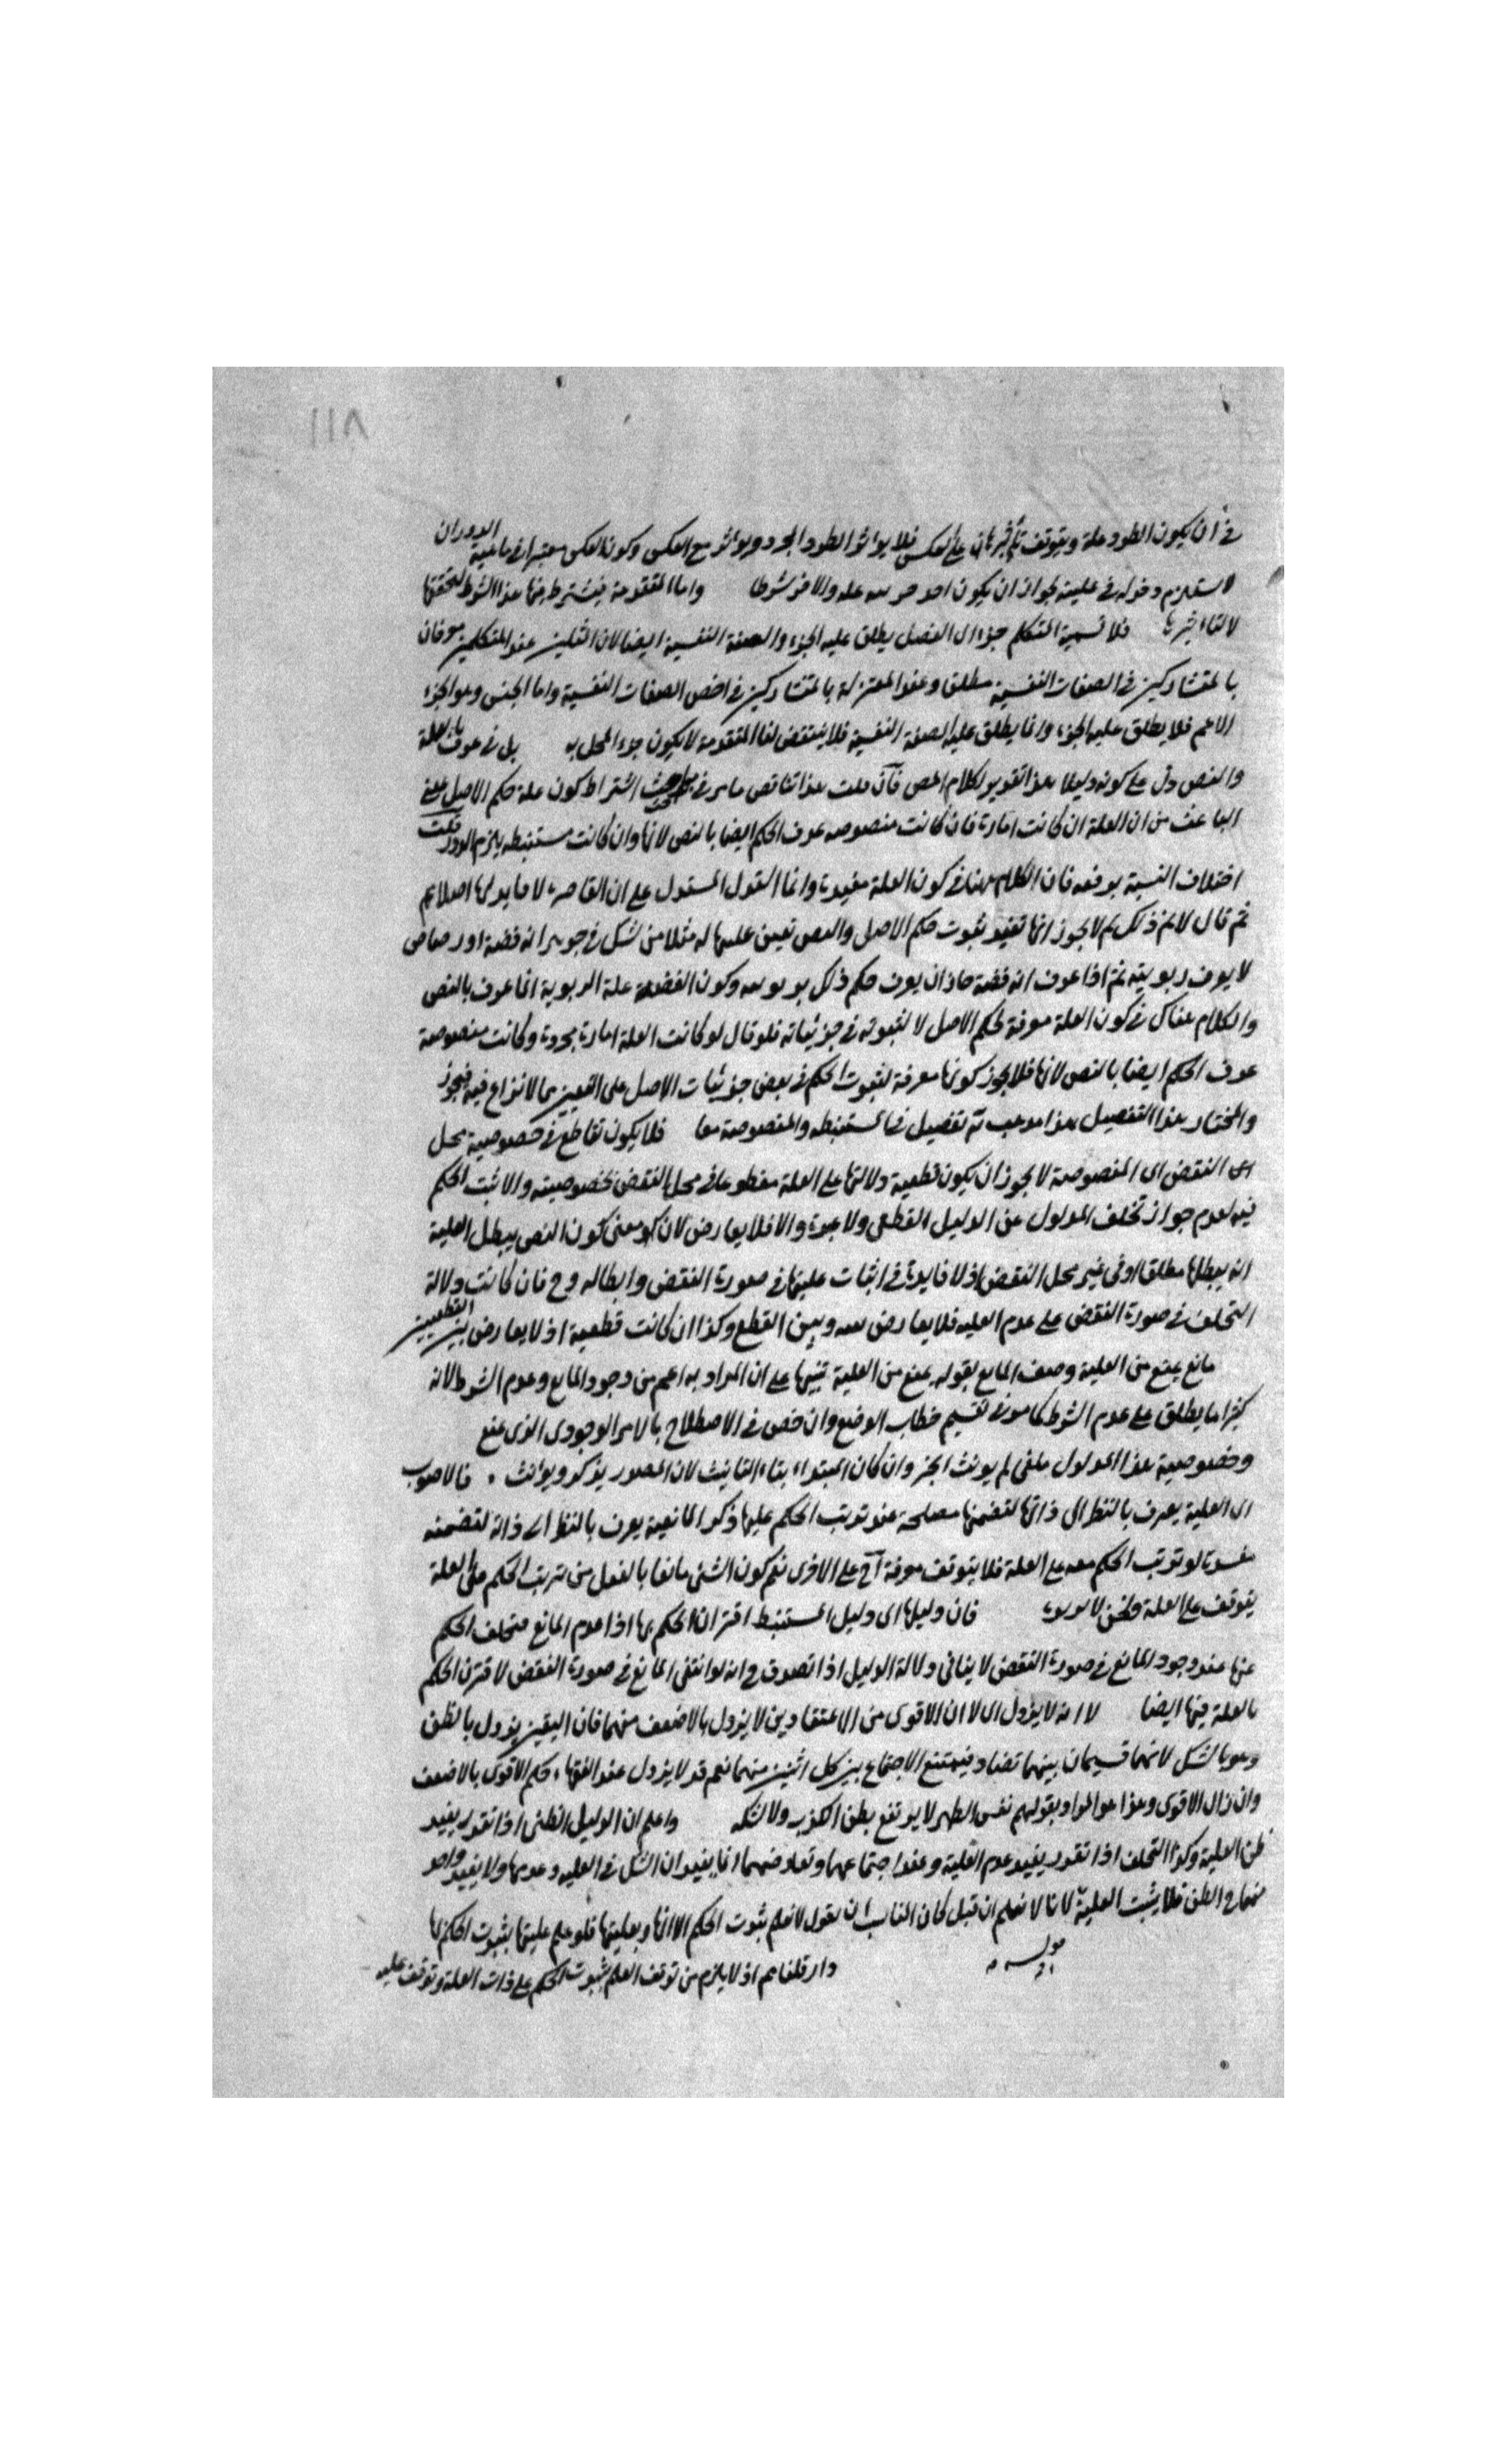 ١١٨
في ان يكون الطرد علة ويتوقف تأثيرها على العكس فلا يؤثر الطرد المجرد ويؤثر مع العكس وكون العكس معتبرا في ماهية الدوران
لا يستلزم دخوله في علية لجواز ان يكون احد علة والاخر شرطا واما المتقدمة فيشترط فيها هذا الشرط لتحققها
لا لتأثيرها فلا تسمية المتكلم جزء الفصل يطلق عليه الجزء والصفة النفسية ايضا لان المثلين عند المتكلمين معرفان
بالمتشاركين في الصفات النفسية مطلق وعند المعتزلة بالمتشاركين في اخص الصفات النفسية واما الجنس وهو الجزء
الاعم فلا يطلق عليه الجزء وانما يطلق عليه الصفة النفسية فلا ينتقض لفا المتقدمة لا يكون جزء المحل به بل في عرف بالعلة
والنص دل على كونه دليلا هذا تقرير لكلام المص فان قلت هذا تناقض ما مر في مباحث اشتراط كون علة حكم الاصل بمعنى
الباعث من ان العلة ان كانت امارة فان كانت منصوصه عرف الحكم ايضا بالنص لا بها وان كانت مستنبطه يلزم الدور قلت
اختلاف النسبة يدفعه فان الكلام ههنا في كون العلة مفيدة وانما المستدل على ان القاصرة لا فايدة لها اصلا
ثم قال لا يجوز انها تفيد ثبوت حكم الاصل والنص تعين مثلا من شك في جوهر انه فضة او رصاص
لا يعرف ربويته ثم اذا عرف انه فضة جاز ان يعرف حكم ذلك وكون الفضة علة الربوية انما عرف بالنص
والكلام هناك في كون العلة معرفة لحكم الاصل لا لثبوته في جزئياته فلو قال لو كانت العلة امارة مجردة وكانت منصوصة
عرف الحكم ايضا بالنص لا بها فلا يجوز كونها معرفة لثبوت الحكم في بعض جزئيات الاصل على التعيين مما لا نزاع فيه فيجوز
والمختار هذا التفصيل هذا مذهب فيه تفصيل في المستنبطه والمنصوصة معا فلا يكون تقاطع في خصوصية محل
النقض اى المنصوصة لا يجوز ان يكون قطعية دلالتها على العلة مقطوعا في محل النقض بخصوصيته والا ثبت الحكم
فيه لعدم جواز تخلف المدلول عن الدليل القطعى ولا عبرة والا فلا يعارض لان معنى كون النص يبطل العلية
انه يبطلها مطلقا او في غير محل النقض اذ لا فايدة في اثبات عليتها في صورة النقض وابطاله وح فان كانت دلالة
التخلف في صورة النقض على عدم العليه فلا يعارض بينه وبين القطع وكذا ان كانت قطعية اذ لا يعارض بين القطعيين
مانع يمنع من العلية وصف المانع بقوله يمنع من العلية تنبيها على ان المراد به اعم من وجود المانع وعدم الشرط لانه
كثيرا ما يطلق على عدم الشرط كما مر في تقسيم خطاب الوضع وان خص في الاصطلاح بالامر الوجودى الذى يمنع
وخصوصية هذا المدلول ملغى لم يؤنث الخبر وان كان المبتداء بتاء التانيث لان المصدر يذكر ويؤنث . فالاصوب
اى العلية يعرف بالنظر الى ذاتها لتضمنها مصلحة عند ترتب الحكم عليها ذكر المانعية يعرف بالنظر الى ذاته لتضمنه
مفسدة لو ترتب الحكم معه على العلة فلا يتوقف معرفة على الاخرى نعم كون الشئ مانعا بالفعل من ترتب الحكم على العلة
يتوقف على العلة ونحن لا نريده فان دليلها اى دليل المستنبط اقتران الحكم بها اذا عدم المانع فتخلف الحكم
عنها عند وجود المانع في صورة النقض لا ينافى دلالة الدليل اذا تصدق ح انه لو انتفى المانع في صورة النقض لاقترن الحكم
بالعلة فيها ايضا لا انه لا يزول اى لا ان الاقوى من الاعتقادين لا يزول بالاضعف منهما فان اليقين يزول بالظن
وهو بالشك لانهما قسيمان بينهما تضاد فيمتنع الاجتماع بين كل اثنين منهما نعم قد لا يزول عند الفقهاء حكم الاقوى بالاضعف
وان زال الاقوى وهذا هو المراد بقولهم نفس الطهر لا يرتفع بظن ولا شك واعلم ان الدليل الظنى اذا تقدر يفيد
ظن العلية وكذا التخلف اذا تقدر يفيد عدم العلية وعند اجتماعهما وتعارضهما انما يفيد ان الشك في العليه وعدمها ولا يفيد واحد
منهما الظن فلا يثبت العلية لانا لا نعلم ان قبل كان المناسب ان نقول لا نعلم ثبوت الحكم الا انها وبعليتها فلو علم عليتها بثبوت الحكم لها
دار قلنا اذ لا يلزم من توقف العلم بثبوت الحكم على ذات العلة وتوقف عليه